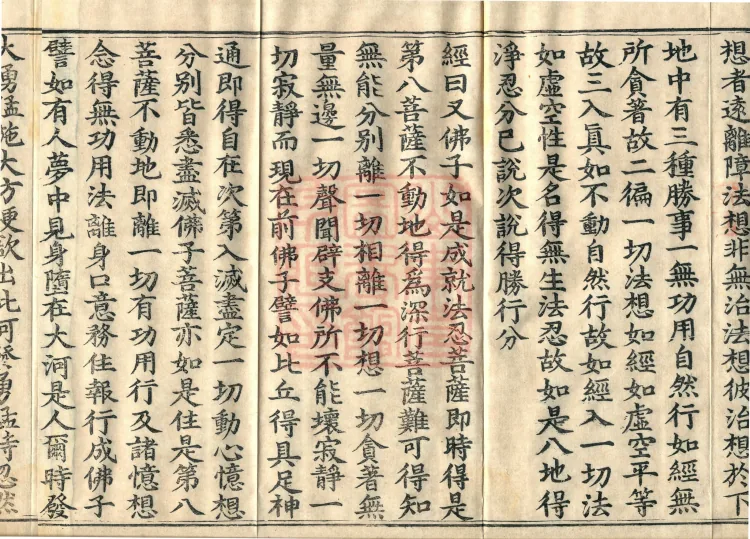 想者遠離障法想非無治法想彼治想於下
地中有三種勝事一無功用自然行如經無
所貪著故二徧一切法想如經如虛空平等
故三入眞如不動自然行故如經入一切法
如虛空性是名得無生法忍故如是八地得
淨忍分已說次說得勝行分
經曰又佛子如是成就法忍菩薩即時得是
第八菩薩不動地得爲深行菩薩難可得知
無能分别離一切相離一切想一切貪著無
量無邊一切聲聞辟支佛所不能壞寂靜一
切寂靜而現在前佛子譬如比丘得具足神
通即得自在次第入滅盡定一切動心憶想
分别皆悉盡滅佛子菩薩亦如是住是第八
菩薩不動地即離一切有功用行及諸憶想
念得無功用法離身口意務住報行成佛子
譬如有人夢中見身墮在大河是人爾時發
大勇猛施大方便欲出此河發勇猛時忽然